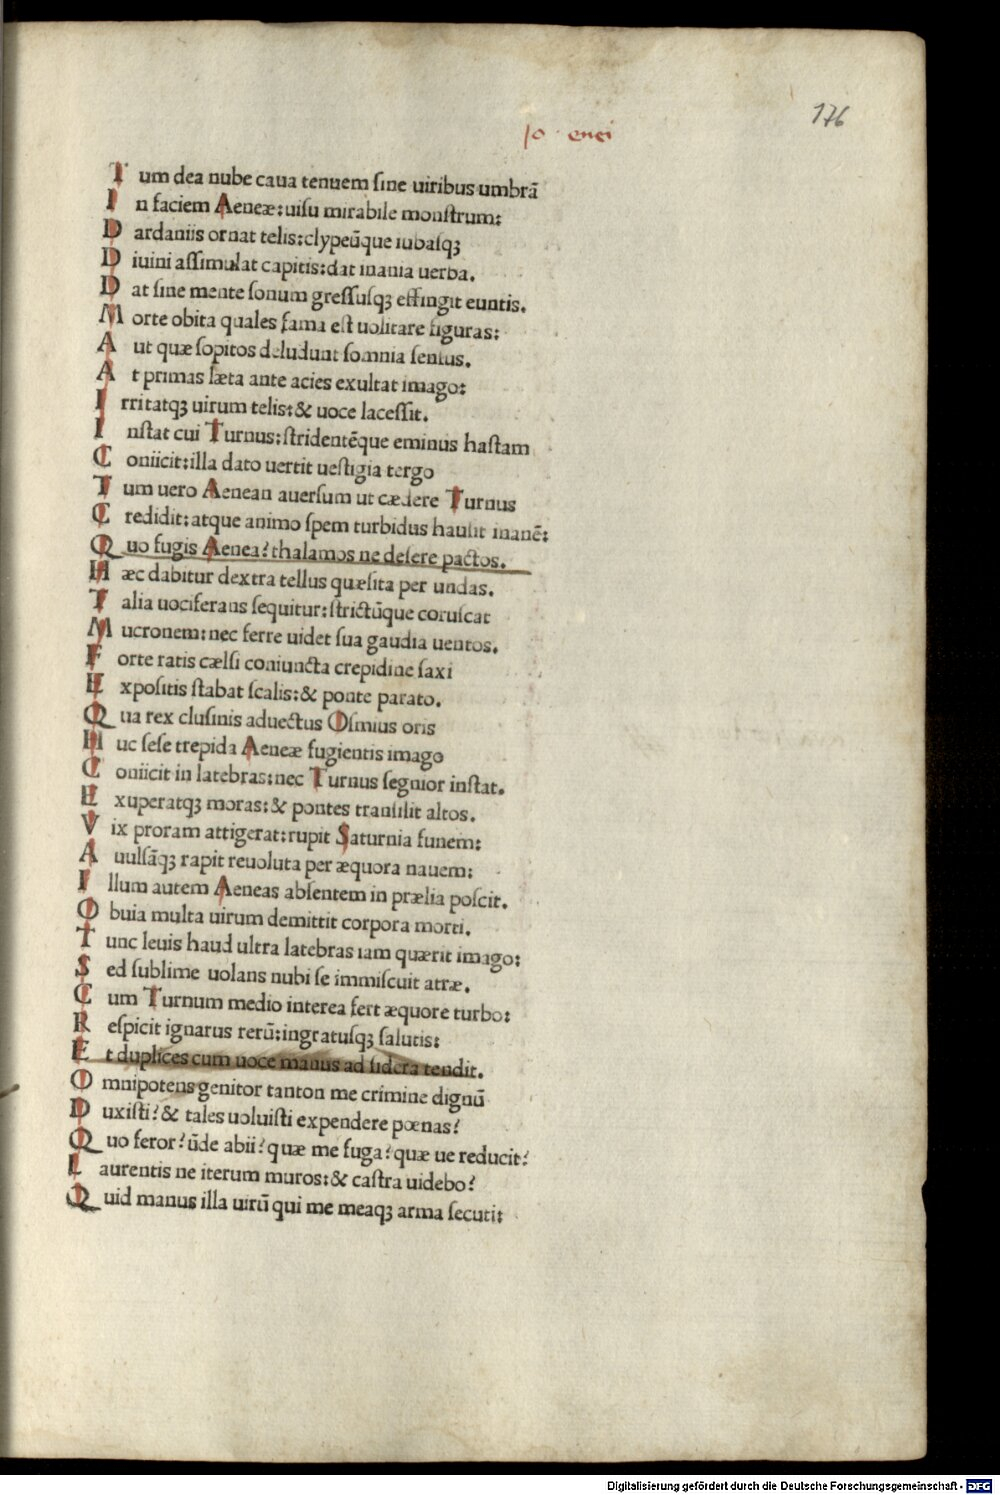 176
10 enei
Tum dea nube caua tenuem ſine uiribus umbrã
In faciem Aeneæ: uiſu mirabile monſtrum:
Dardaniis ornat telis: clypeũque iubaſqꝫ
Diuini aſſimulat capitis: dat inania uerba.
Dat ſine mente ſonum greſſuſqꝫ effingit euntis.
Morte obita quales fama eſt uolitare figuras:
Aut quæ ſopitos deludunt ſomnia ſenſus.
At primas læta ante acies exultat imago:
Irritatqꝫ uirum telis: & uoce laceſſit.
Inſtat cui Turnus: ſtridentẽque eminus haſtam
Coniicit: illa dato uertit ueſtigia tergo
Tum uero Aenean auerſum ut cædere Turnus
Credidit: atque animo ſpem turbidus hauſit inanẽ:
Quo fugis Aenea? thalamos ne deſere pactos.
Hæc dabitur dextra tellus quæſita per undas.
Talia uociferans ſequitur: ſtrictũque coruſcat
Mucronem: nec ferre uidet ſua gaudia uentos.
Forte ratis cælſi coniuncta crepidine ſaxi
Expoſitis ſtabat ſcalis: & ponte parato.
Qua rex cluſinis aduectus Oſmius oris
Huc ſeſe trepida Aeneæ fugientis imago
Coniicit in latebras: nec Turnus ſegnior inſtat.
Exuperatqꝫ moras: & pontes tranſilit altos.
Vix proram attigerat: rupit Saturnia funem:
Auulſãqꝫ rapit reuoluta per æquora nauem:
Illum autem Aeneas abſentem in prælia poſcit.
Obuia multa uirum demittit corpora morti.
Tunc leuis haud ultra latebras iam quærit imago:
Sed ſublime uolans nubi ſe immiſcuit atræ.
Cum Turnum medio interea fert æquore turbo:
Reſpicit ignarus rerũ: ingratuſqꝫ ſalutis:
Et duplices cum uoce manus ad ſidera tendit.
Omnipotens genitor tanton me crimine dignũ
Duxiſti? & tales uoluiſti expendere pœnas?
Quo feror? ũde abii? quæ me fuga? quæ ue reducit?
Laurentis ne iterum muros: & caſtra uidebo?
Quid manus illa uirũ qui me meaqꝫ arma ſecuti:
Digitalisierung gefördert durch die Deutsche Forschungsgemeinschaft - DFG